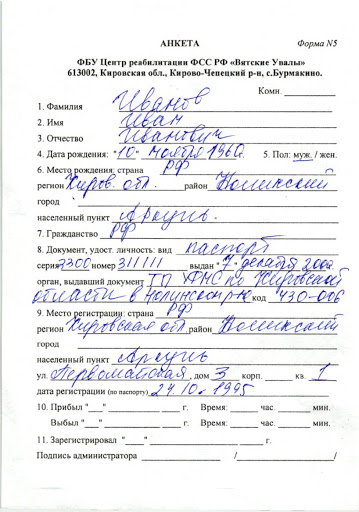 АНКЕТА Форма N5
ФБУ Центр реабилитации ФСС РФ «Вятские Увалы»
613002, Кировская обл., Кирово-Чепецкий р-н, с.Бурмакино.
Комн. ____________
1. Фамилия Иванов
2. Имя Иван
3. Отчество Иванович
4. Дата рождения: "10" ноября 1960г. 5. Пол: муж. / жен.
6. Место рождения: страна РФ
регион Киров. обл. район Нолинский
город
населенный пункт Аркуль.
7. Гражданство РФ
8. Документ, удост. личность: вид паспорт
серия 3300 номер 311111 выдан "7" декабря
орган, выдавший документ ТП УФМС по Кировской
области в Нолинском р-не код 430-006
9. Место регистрации: страна РФ
регион Кировская обл район Нолинский
город
населенный пункт Аркуль
ул. Первомайская, дом 3 корп. ______ кв. 1
дата регистрации (по паспорту) 24.10.1995
10. Прибыл "___" ____________ г. Время: _____ час. _____ мин.
Выбыл "___" ____________ г. Время: _____ час. _____ мин.
11. Зарегистрировал "___" ____________ _____ г.
Подпись администратора ____________ /____________/